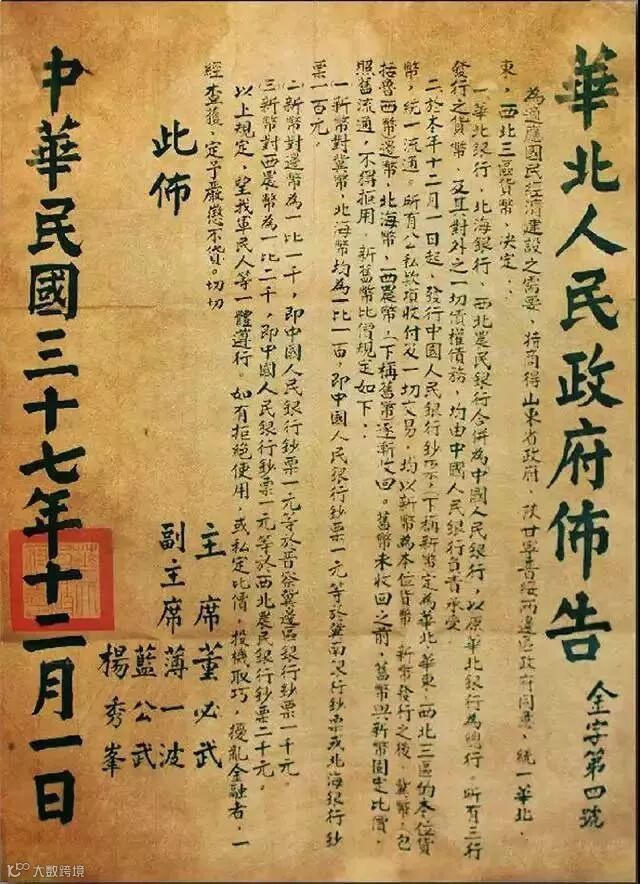 華北人民政府佈告
金字第四號
為適應國民經濟建設之需要,特商得山東省政府,陝甘寧晉綏兩邊區政府同意,統一華北,
東,西北三區貨幣,決定:
一華北銀行、北海銀行、西北農民銀行合併為中國人民銀行,以原華北銀行為總行。所有三行
發行之貨幣,及其對外之一切債權債務,均由中國人民銀行負責承受。
二於本年十二月一日起,發行中國人民銀行鈔票(下稱新幣)定為華北、華東、西北三區的本位貨
幣,統一流通。所有公私款項收付及一切交易,均以新幣為本位貨幣。新幣發行之後,冀幣(包
括魯西幣)邊幣、北海幣、西農幣(下稱舊幣)逐漸收回。舊幣未收回之前,舊幣與新幣固定比價,
照舊流通,不得拒用。新舊幣比價規定如下:
一新幣對冀幣、北海幣均為一比一百,即中國人民銀行鈔票一元等於冀南銀行鈔票或北海銀行鈔
票一百元。
二新幣對邊幣為一比一千,即中國人民銀行鈔票一元等於晉察冀邊區銀行鈔票一千元。
三新幣對西農幣為一比二千,即中國人民銀行鈔票一元等於西北農民銀行鈔票二十元。
以上規定,望我軍民人等一體遵行。如有拒絕使用,或私定比價,投機取巧,擾亂金融者,一
經查獲,定予嚴懲不貸。切切
此佈
主席董必武
副主席薄一波
藍公武
楊秀峯
中華民國三十七年十二月一日
大數跨境